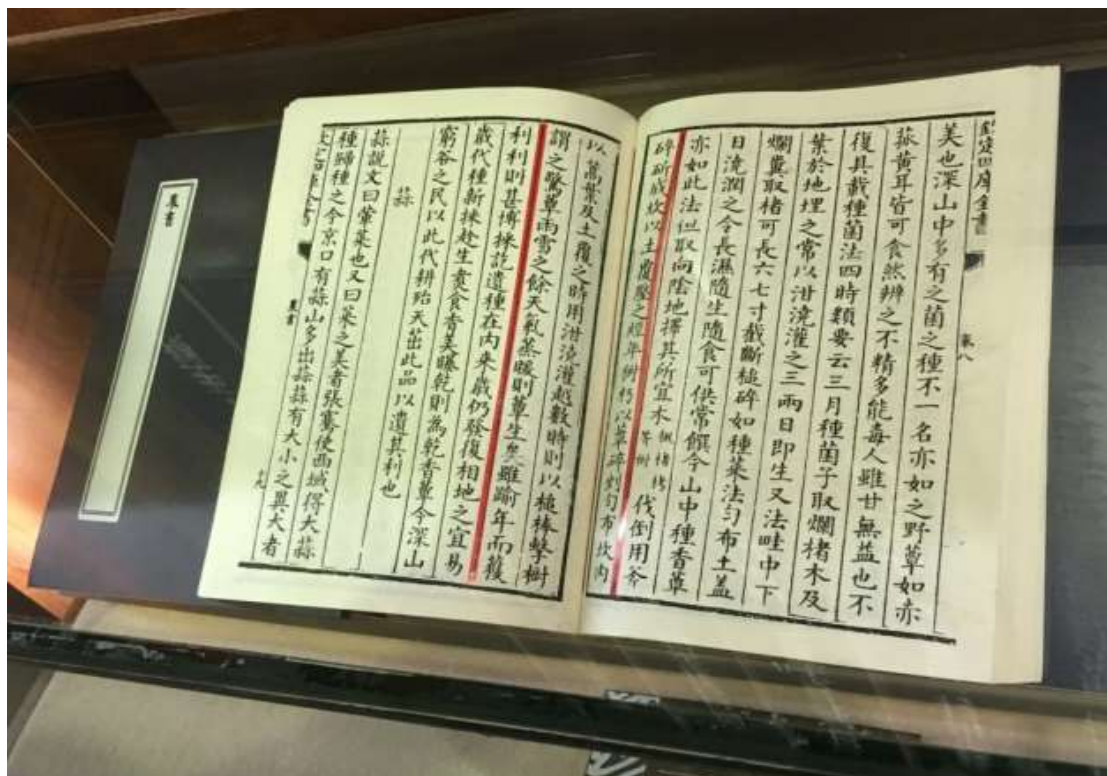 欽定四庫全書
卷八
美也深山中多有之菌之種不一名亦如之野蕈如赤
菰黄耳皆可食然辨之不精多能毒人雖甘無益也不
復具載種菌法四時類要云三月種菌子取爛楮木及
葉於地埋之常以泔澆灌之三兩日即生又法畦中下
爛糞取楮可長六七寸截斷槌碎如種菜法勻布土蓋
日澆潤之令長濕隨生隨食可供常饌今山中種香蕈
亦如此法但取向陰地擇其所宜木楓楮栲等樹伐倒用斧
碎斫成坎以土覆壓之經年樹朽以蕈碎剉勻布坎内
以蒿葉及土覆之時用泔澆灌越數時則以槌棒擊樹
謂之驚蕈雨雪之餘天氣蒸暖則蕈生矣雖踰年而獲
利利則甚博採訖遺種在内来歲仍發復相地之宜易
歲代種新採趁生煮食香美曝乾則為乾香蕈今深山
窮谷之民以此代耕殆天茁此品以遺其利也
蒜
蒜說文曰葷菜也又曰菜之美者張騫使西域得大蒜
種歸種之今京口有蒜山多出蒜蒜有大小之異大者
農書
十九
農書